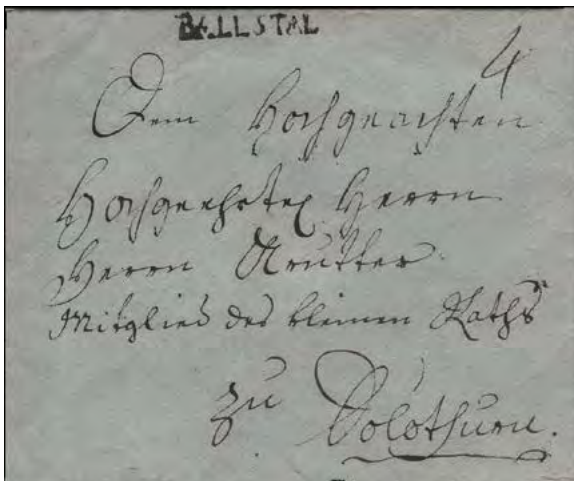 BALLSTAL
4
Dem Hochgeachten
Hochgeehrten Herrn
Herrn
Mitglied des kleinen Raths
zu Solothurn.